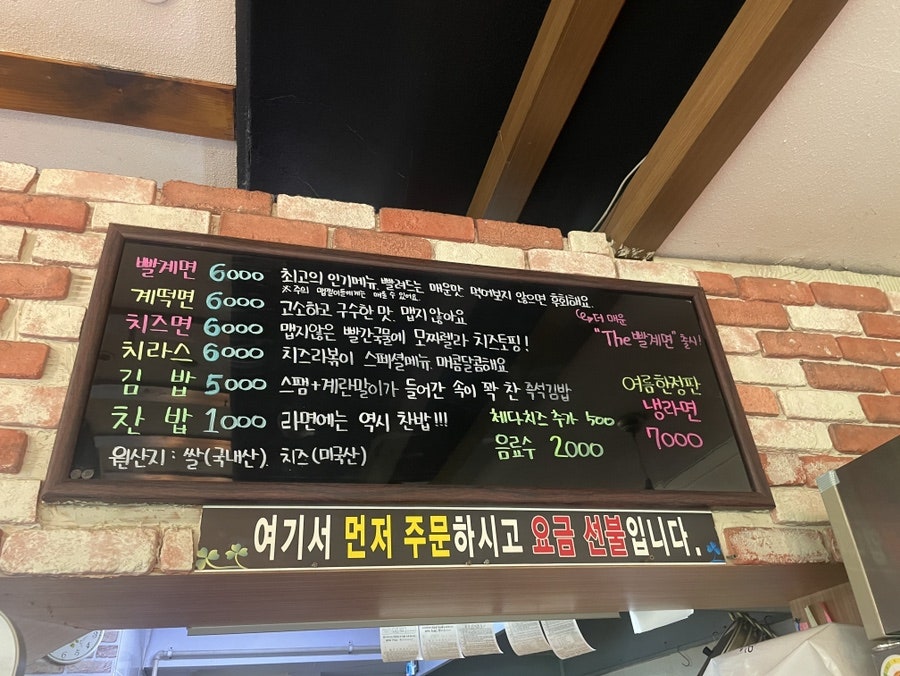 빨계면 6000 최고의 인기메뉴. 빨려드는 매운맛 먹어보지 않으면 후회해요.
※주의 맵찔이들에게는 매울 수 있어요
계떡면 6000 고소하고 구수한 맛. 맵지않아요
치즈면 6000 맵지않은 빨간국물에 모짜렐라 치즈토핑!
치라스 6000 치즈라볶이 스페셜메뉴. 매콤달콤해요
김밥 5000 스팸+계란말이가 들어간 속이 꽉 찬 즉석김밥
찬밥 1000 라면에는 역시 찬밥!!!
원산지: 쌀(국내산). 치즈(미국산)
체다치즈 추가 500
음료수 2000
더 매운
"The 빨계면" 출시!
여름한정판
냉라면
7000
여기서 먼저 주문하시고 요금 선불입니다.